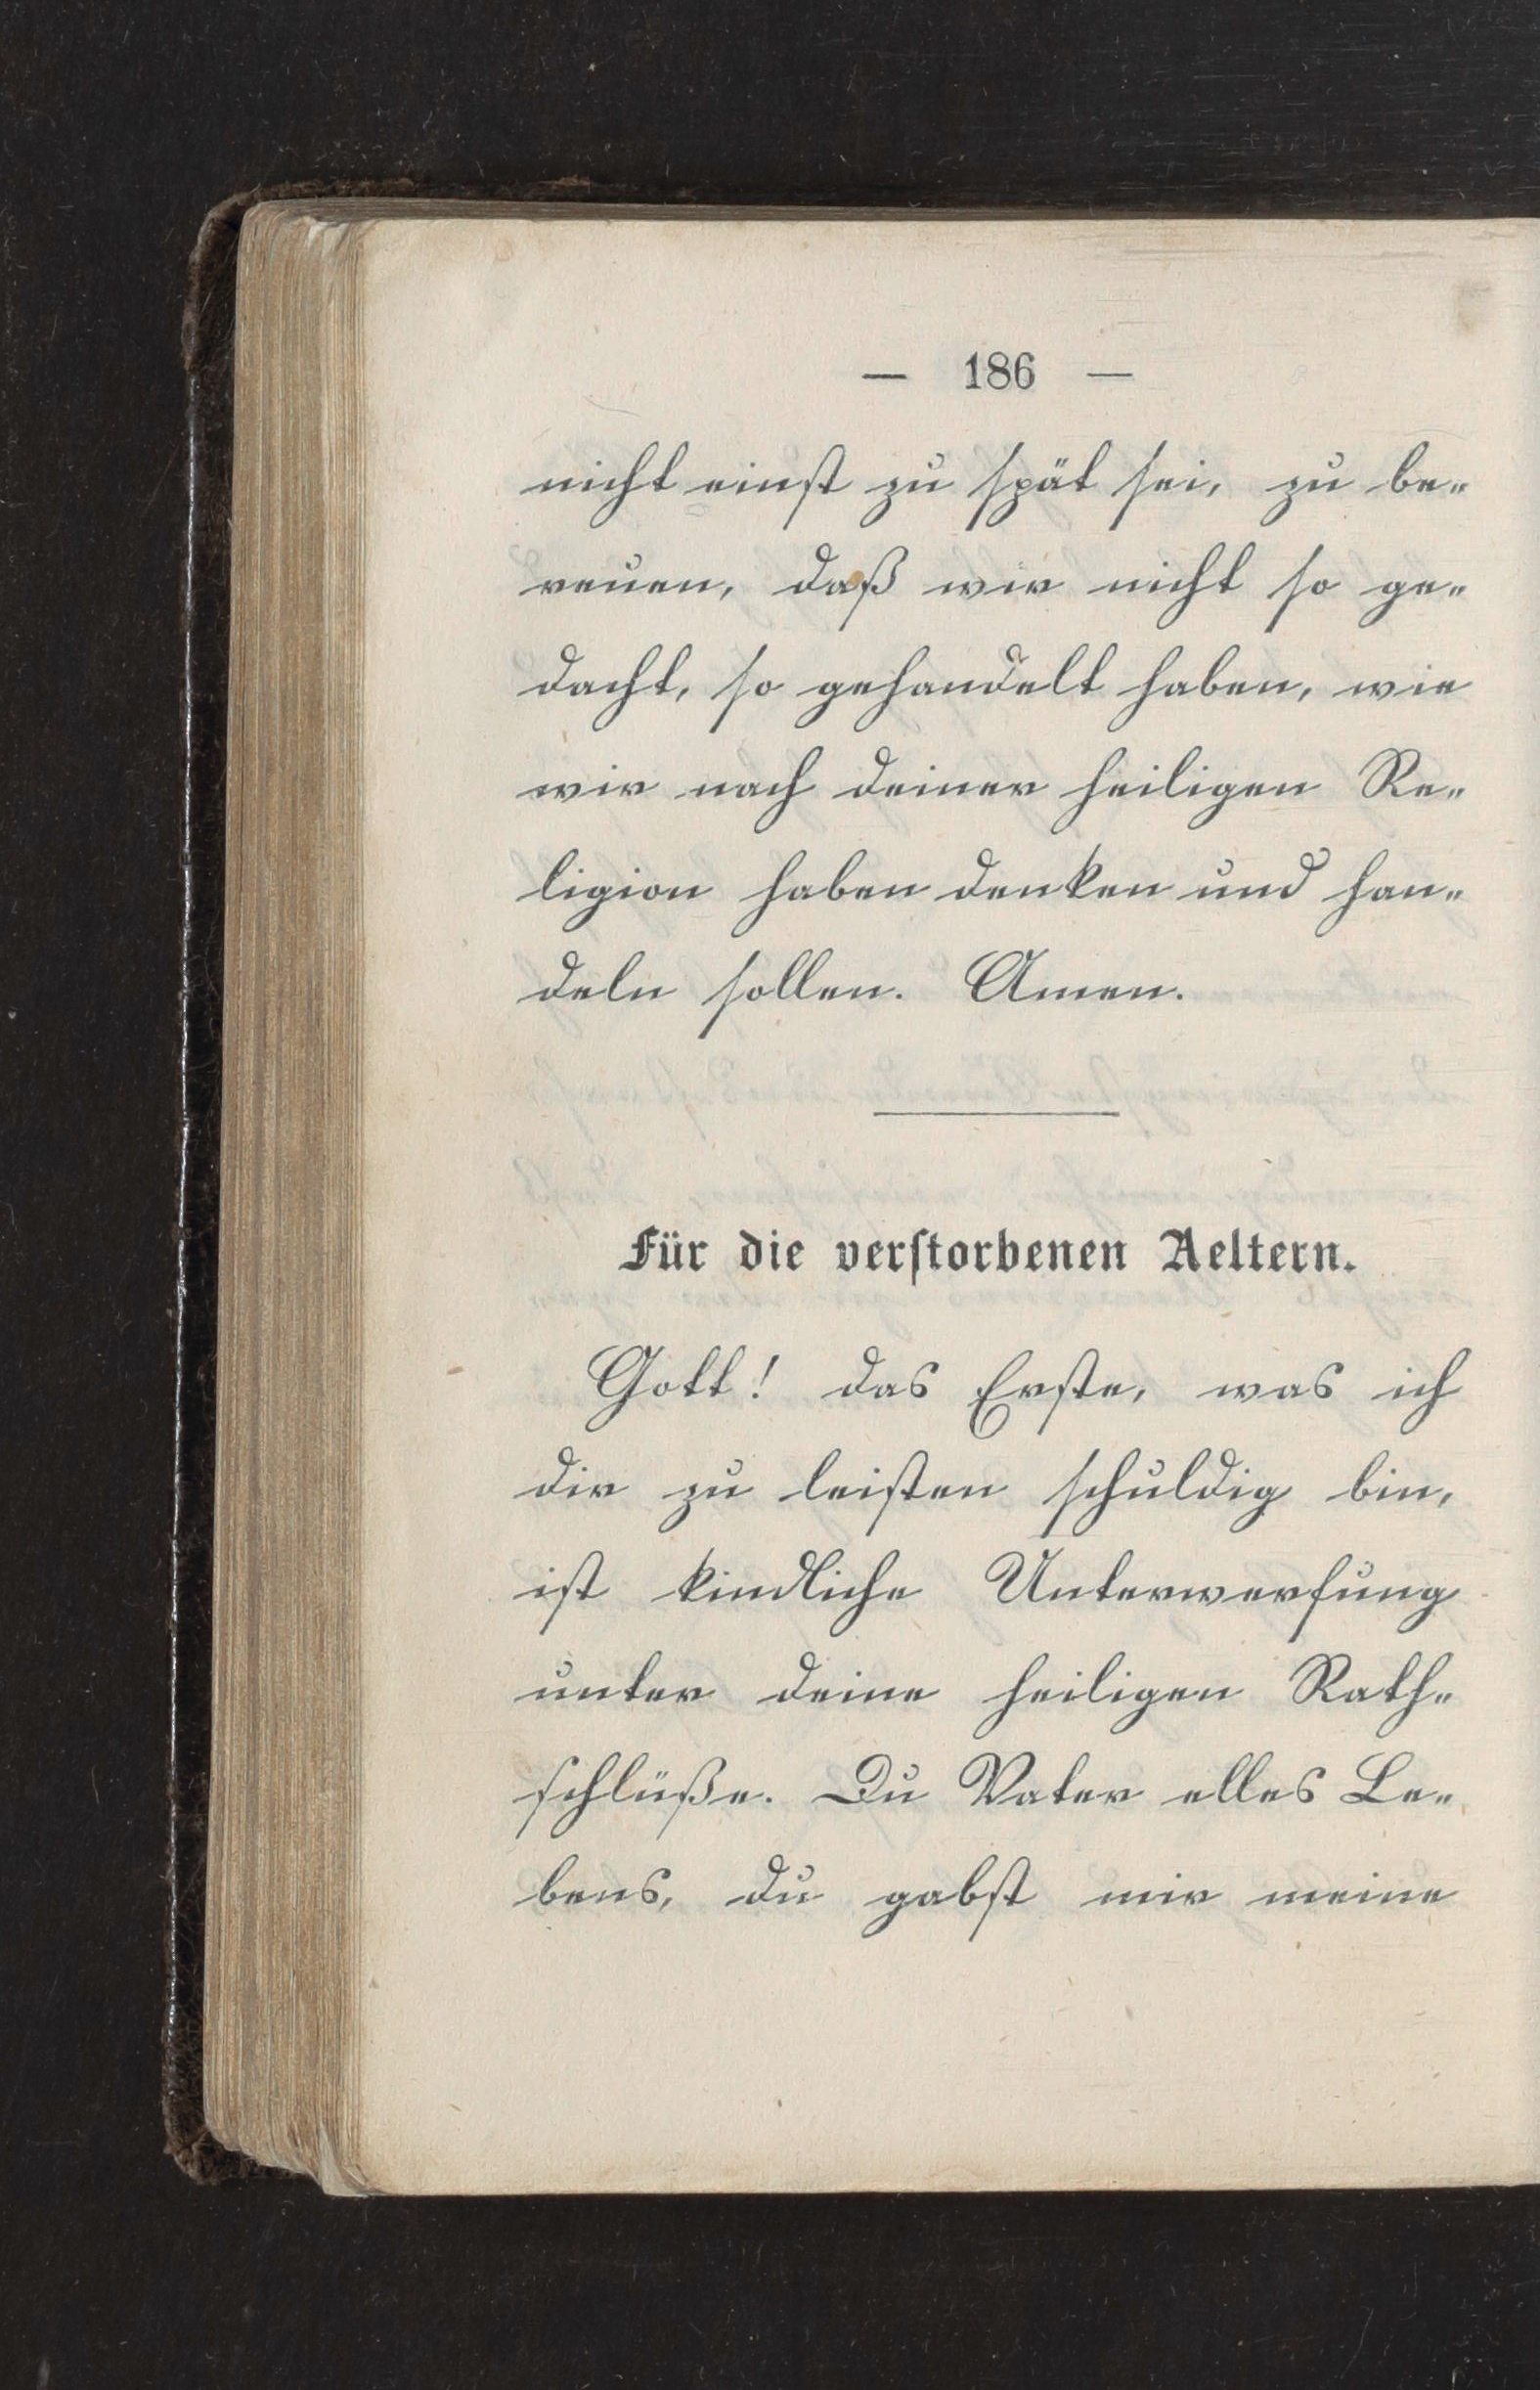 — 186 —
nicht einst zu spät sei, zu be-
reuen, daß wir nicht so ge-
dacht, so gehandelt haben, wie
wir nach deiner heiligen Re-
ligion haben denken und han-
deln sollen. Amen.
Für die verstorbenen Aeltern.
Gott! das Erste, was ich
dir zu leisten schuldig bin,
ist kindliche Unterwerfung
unter deine heiligen Rath-
schlüße. Du Vater elles Le-
bens, du gabst mir meine